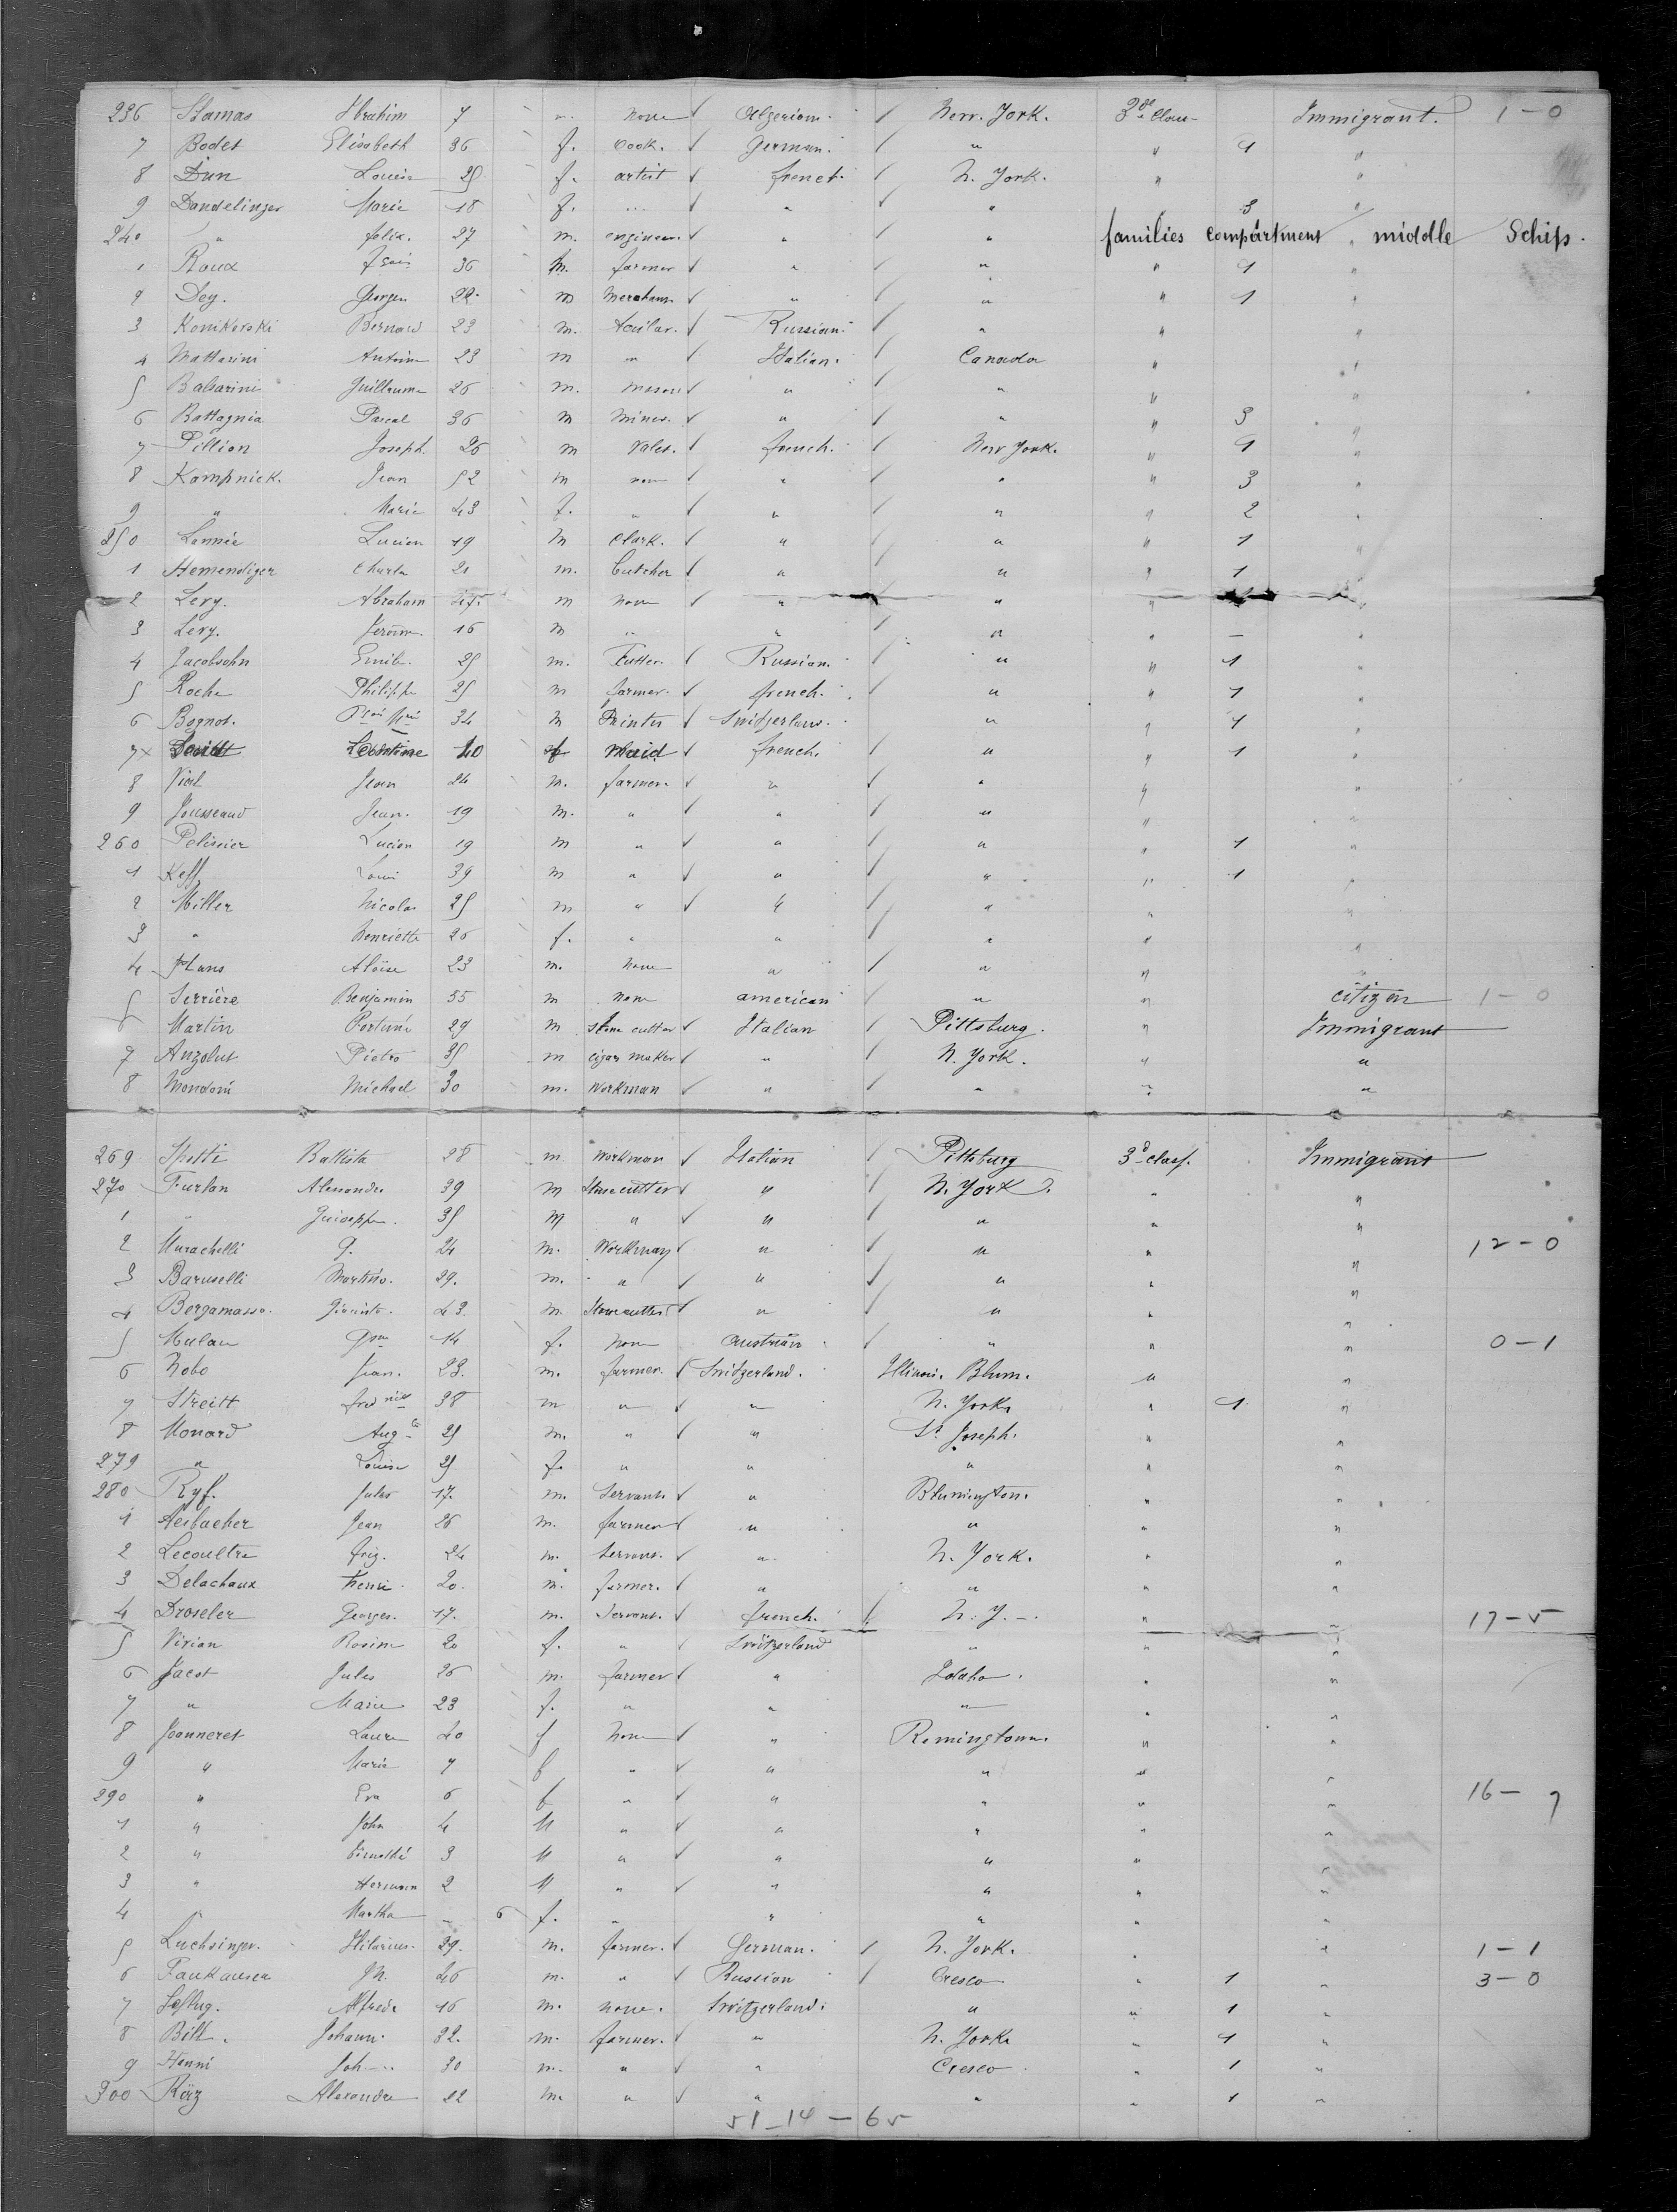 236 Stamas Ibrahim 7 m. none Algerian. New. York. 3de Class Immigrant. 1-0
7 Bodet Elisabeth 36 f. cook. German. " " 1 "
8 Dun Louise 25 f. artist french. N. York. " "
9 Dandelinger Marie 18 f. ... " " " 3 "
240 " felix. 27 m. engineer. " " families compartment " middle Schips.
1 Roux 36 m. farmer " " " 1 "
2 Dey. Georges 22. m " " " 1 "
3 Konikorski Bernard 23 m. Russian. " " "
4 Mattarini Antoine 23 m " Italian. Canada " "
5 Balsarini Guillaume 26 m. mason " " " "
6 Battagnia Pascal 36 m miner. " " " 3 "
7 Pillion Joseph. 26 m valet. french. New York. " 1 "
8 Kompnick. Jean 52 m none " " " 3 "
9 " Marie 43 f. " " " " 2 "
250 Lannée Lucien 19 m Clark. " " " 1 "
1 Hemendiger Charles 21 m. Butcher " " " 1 "
2 Levy. Abraham m none " " " "
3 Levy. Jerôme. 16 m " " " " - "
4 Jacobsohn Emile. 25 m. Russian. " " 1 "
5 Roche Philippe 25 m farmer. french. " " 1 "
6 Bognot. 34 m Printer Switzerland. " " 1 "
7 Leontine 40 f Maid french. " " 1 "
8 Viel Jean 24 m. farmer. " " " "
9 Jousseaud Jean. 19 m. " " " " "
260 Pelissier Lucien 19 m " " " " 1 "
1 Keff, Louis 39 m " " " " 1 "
2 Miller Nicolas 25 m " " " " "
3 " Henriette 26 f. " " " " "
4 Hans Aloïse 23 m. none " " " "
5 Serrière Benjamin 55 m none american " " citizen 1-0
6 Martin Fortuné 29 m stone cutter Italian Pittsburg. " Immigrant
7 Anzolut Pietro 35 m cigar maker " N. York. " "
8 Mondoni Michael 30 m. Workman " " " "
269 Battista 28 m Workman Italian Pittsburg 3d class. Immigrant
270 Furlan Alessandro 39 m Stone cutter " N. York. " "
1 " Guiseppe. 35 m " " " " "
2 Murachelli G. 24 m. Workman " " " " 12-0
3 Baruselli Martino. 29. m. " " " " "
4 Bergamasso. Giacinto. 43. m. Stone cutter " " " "
5 Mulau 14 f. none Austrian " " " 0-1
6 Nobo Jean. 23. m. farmer. Switzerland. Illinois. Blum. " "
7 Streitt 38 m " " N. York. " 1 "
8 Monard Aug 25 m. " " St Joseph. " "
279 " Louise 25 f. " " " " "
280 Ryf. Jules 17. m. Servant. " Blumington. " "
1 Aesbacher Jean 26 m. farmer " " " "
2 Lecoultre 24 m. Servant. " N. York. " "
3 Delachaux Henri. 20. m. farmer. " " " "
4 Droseler Georges. 17. m. Servant. french. N. Y. - " " 17-5
5 Vivian Rosine 20 f. " Switzerland " " "
6 Jacot Jules 26 m. farmer " Idaho. " "
7 " Marie 23 f. " " " " "
8 Jeanneret Laure 40 f none " Remingtown. " "
9 " Marie 7 f " " " " "
290 " Eva 6 f " " " " " 16-7
1 " John 4 M " " " " "
2 " 3 M " " " " "
3 " Hermann 2 M " " " " "
4 " Martha - 6 f. " " " " "
5 Luchsinger. Hilarius. 29. m. farmer. German. N. York. " " 1-1
6 Fankausen Jh. 46 m. " Russian Cresco " 1 " 3-0
7 Alfred 16 m. none. Switzerland. " " 1 "
8 Bill. Johann. 32. m. farmer. " N. York " 1 "
9 Henni Joh... 30 m. " " Cresco " 1 "
300 Räz Alexandre 22 m. " " " " 1 "
51-14-65